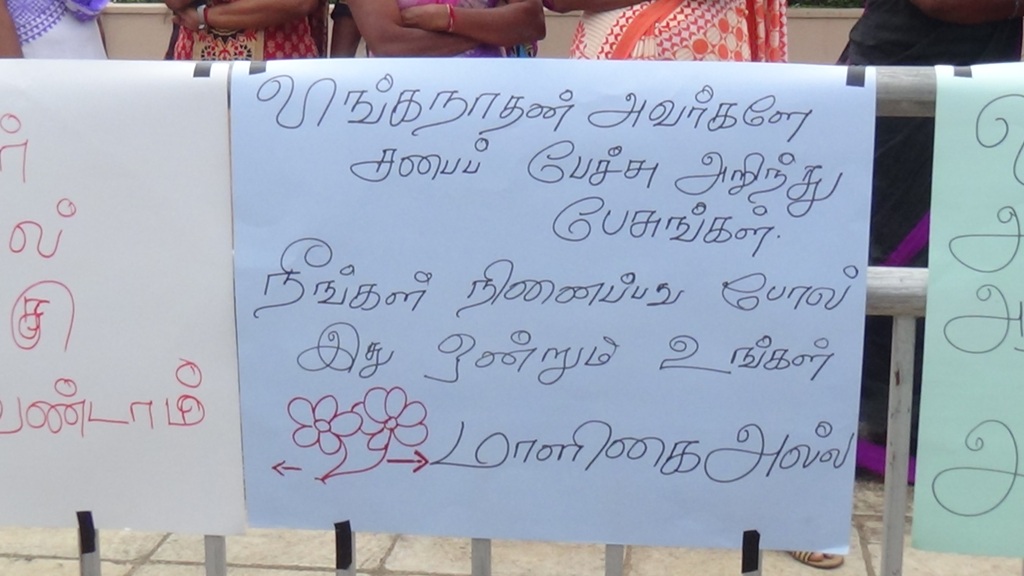 ரங்கநாதன் அவர்களே
சபைப் பேச்சு அறிந்து
பேசுங்கள்.
நீங்கள் நினைப்பது போல்
இது ஒன்றும் உங்கள்
மாளிகை அல்ல
ல்
சு
வேண்டாம்